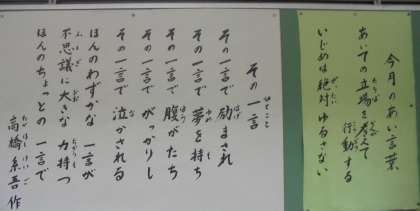 今月のあい言葉
あいての立場を考えて
行動する
いじめは絶対ゆるさない
その一言
その一言で励まされ
その一言で夢を持ち
その一言で腹がたち
その一言でがっかりし
その一言で泣かされる
ほんのわずかな一言が
不思議に大きな力持つ
ほんのちょっとの一言で
高橋系吾作